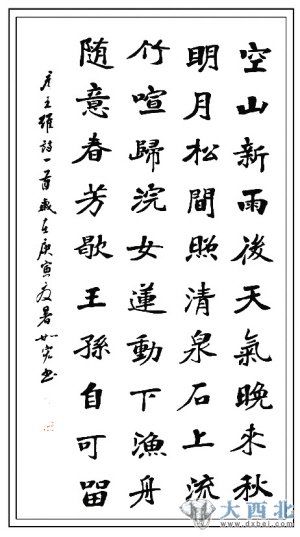 空山新雨後天氣晚来秋
明月松間照清泉石上流
竹喧歸浣女蓮動下漁舟
随意春芳歇王孫自可留
唐王維詩一首歲在庚寅處暑书
大西北
www.dxbei.com